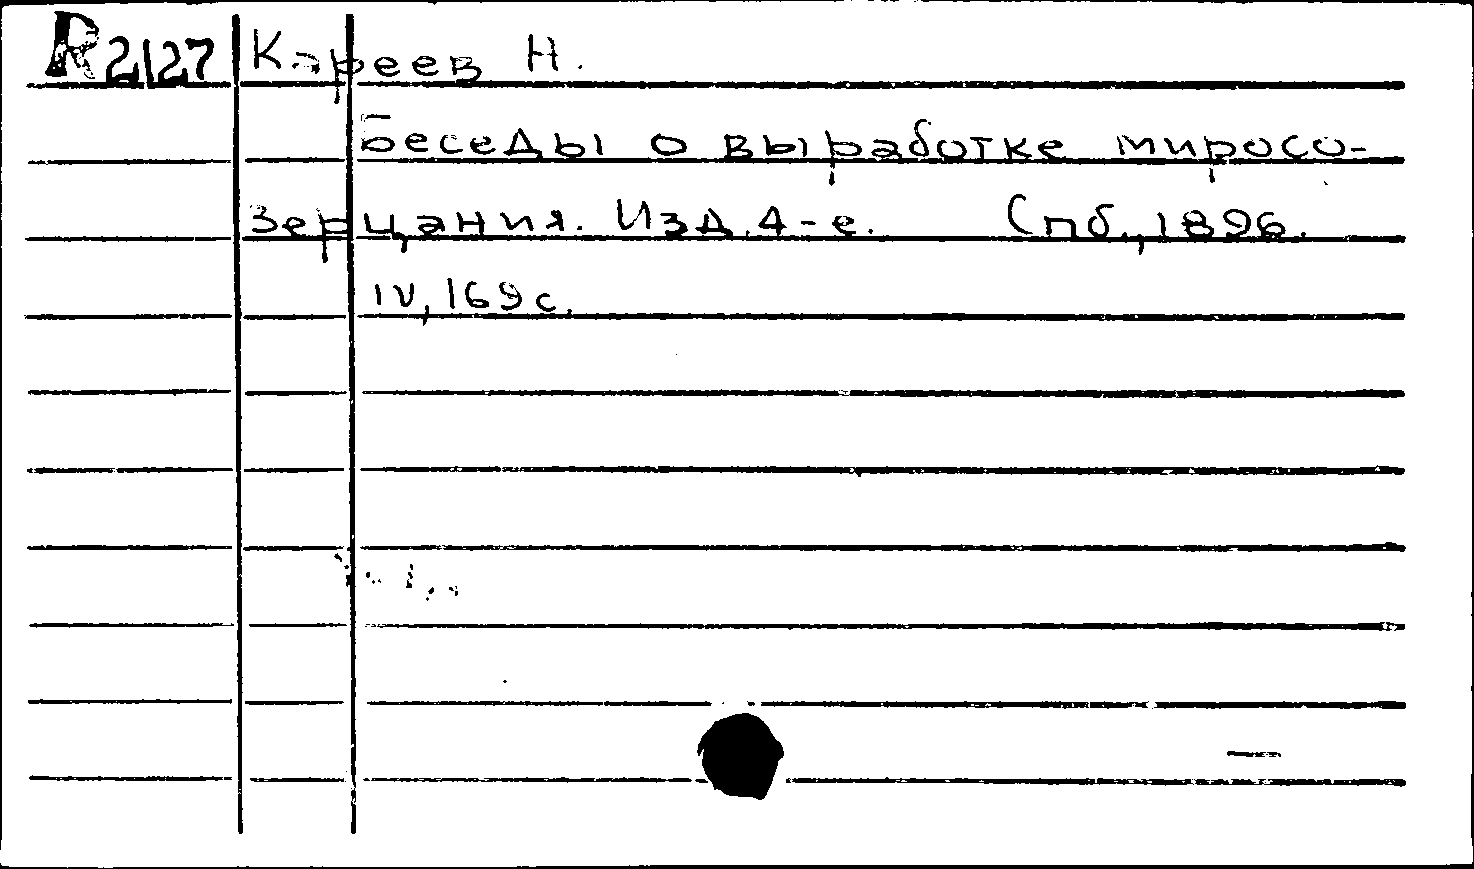 R 2127 Кареев Н.
Беседы о выработке миросо-
зерцания. Изд. 4-е. Спб., 1896.
IV, 169 с.